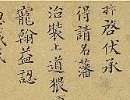 啓伏承
得請名藩
治裝上道猥
寵翰益認